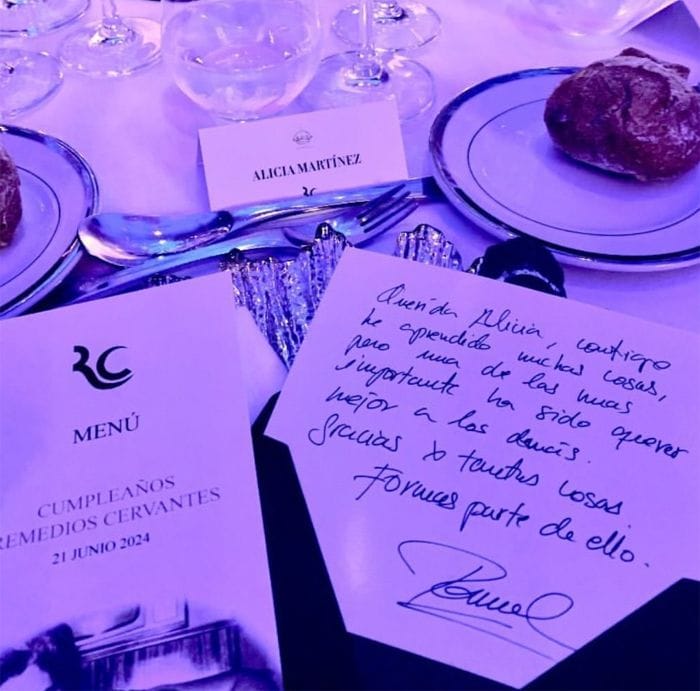 ALICIA MARTÍNEZ
RC
RC
MENÚ
CUMPLEAÑOS
REMEDIOS CERVANTES
21 JUNIO 2024
Querida Alicia, contigo
he aprendido muchas cosas,
pero una de las mas
importante ha sido querer
mejor a los demás.
Gracias x tantas cosas.
Formas parte de ello.